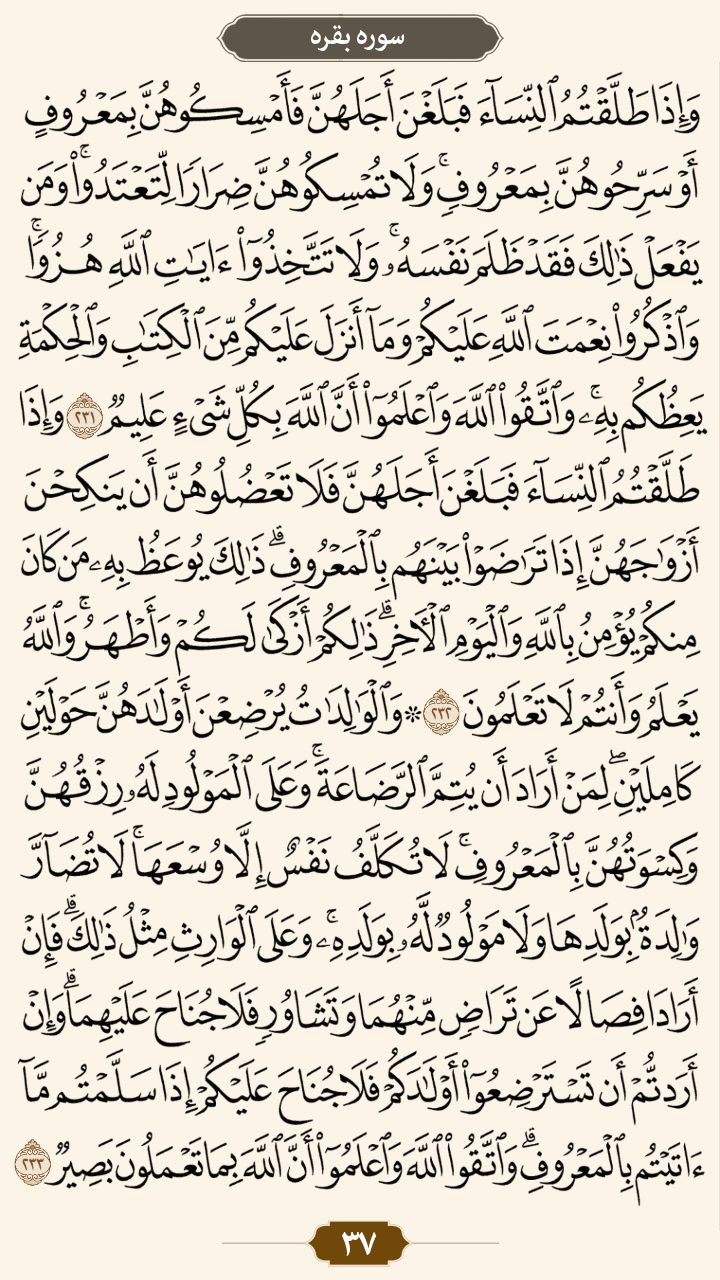 سوره بقره
وَإِذَا طَلَّقْتُمُ ٱلنِّسَآءَ فَبَلَغْنَ أَجَلَهُنَّ فَأَمْسِكُوهُنَّ بِمَعْرُوفٍ
أَوْ سَرِّحُوهُنَّ بِمَعْرُوفٍ ۚ وَلَا تُمْسِكُوهُنَّ ضِرَارًا لِّتَعْتَدُوا۟ ۚ وَمَن
يَفْعَلْ ذَٰلِكَ فَقَدْ ظَلَمَ نَفْسَهُۥ ۚ وَلَا تَتَّخِذُوٓا۟ ءَايَٰتِ ٱللَّهِ هُزُوًا ۚ
وَٱذْكُرُوا۟ نِعْمَتَ ٱللَّهِ عَلَيْكُمْ وَمَآ أَنزَلَ عَلَيْكُم مِّنَ ٱلْكِتَٰبِ وَٱلْحِكْمَةِ
يَعِظُكُم بِهِۦ ۚ وَٱتَّقُوا۟ ٱللَّهَ وَٱعْلَمُوٓا۟ أَنَّ ٱللَّهَ بِكُلِّ شَىْءٍ عَلِيمٌ ٢٣١ وَإِذَا
طَلَّقْتُمُ ٱلنِّسَآءَ فَبَلَغْنَ أَجَلَهُنَّ فَلَا تَعْضُلُوهُنَّ أَن يَنكِحْنَ
أَزْوَٰجَهُنَّ إِذَا تَرَٰضَوْا۟ بَيْنَهُم بِٱلْمَعْرُوفِ ۗ ذَٰلِكَ يُوعَظُ بِهِۦ مَن كَانَ
مِنكُمْ يُؤْمِنُ بِٱللَّهِ وَٱلْيَوْمِ ٱلْءَاخِرِ ۗ ذَٰلِكُمْ أَزْكَىٰ لَكُمْ وَأَطْهَرُ ۚ وَٱللَّهُ
يَعْلَمُ وَأَنتُمْ لَا تَعْلَمُونَ ٢٣٢ * وَٱلْوَٰلِدَٰتُ يُرْضِعْنَ أَوْلَٰدَهُنَّ حَوْلَيْنِ
كَامِلَيْنِ ۖ لِمَنْ أَرَادَ أَن يُتِمَّ ٱلرَّضَاعَةَ ۚ وَعَلَى ٱلْمَوْلُودِ لَهُۥ رِزْقُهُنَّ
وَكِسْوَتُهُنَّ بِٱلْمَعْرُوفِ ۚ لَا تُكَلَّفُ نَفْسٌ إِلَّا وُسْعَهَا ۚ لَا تُضَآرَّ
وَٰلِدَةٌۢ بِوَلَدِهَا وَلَا مَوْلُودٌ لَّهُۥ بِوَلَدِهِۦ ۚ وَعَلَى ٱلْوَارِثِ مِثْلُ ذَٰلِكَ ۗ فَإِنْ
أَرَادَا فِصَالًا عَن تَرَاضٍ مِّنْهُمَا وَتَشَاوُرٍ فَلَا جُنَاحَ عَلَيْهِمَا ۗ وَإِنْ
أَرَدتُّمْ أَن تَسْتَرْضِعُوٓا۟ أَوْلَٰدَكُمْ فَلَا جُنَاحَ عَلَيْكُمْ إِذَا سَلَّمْتُم مَّآ
ءَاتَيْتُم بِٱلْمَعْرُوفِ ۗ وَٱتَّقُوا۟ ٱللَّهَ وَٱعْلَمُوٓا۟ أَنَّ ٱللَّهَ بِمَا تَعْمَلُونَ بَصِيرٌ ٢٣٣
٣٧